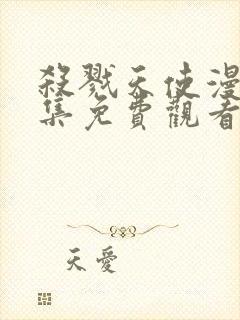 殺戮天使漫
集免費觀看
天愛